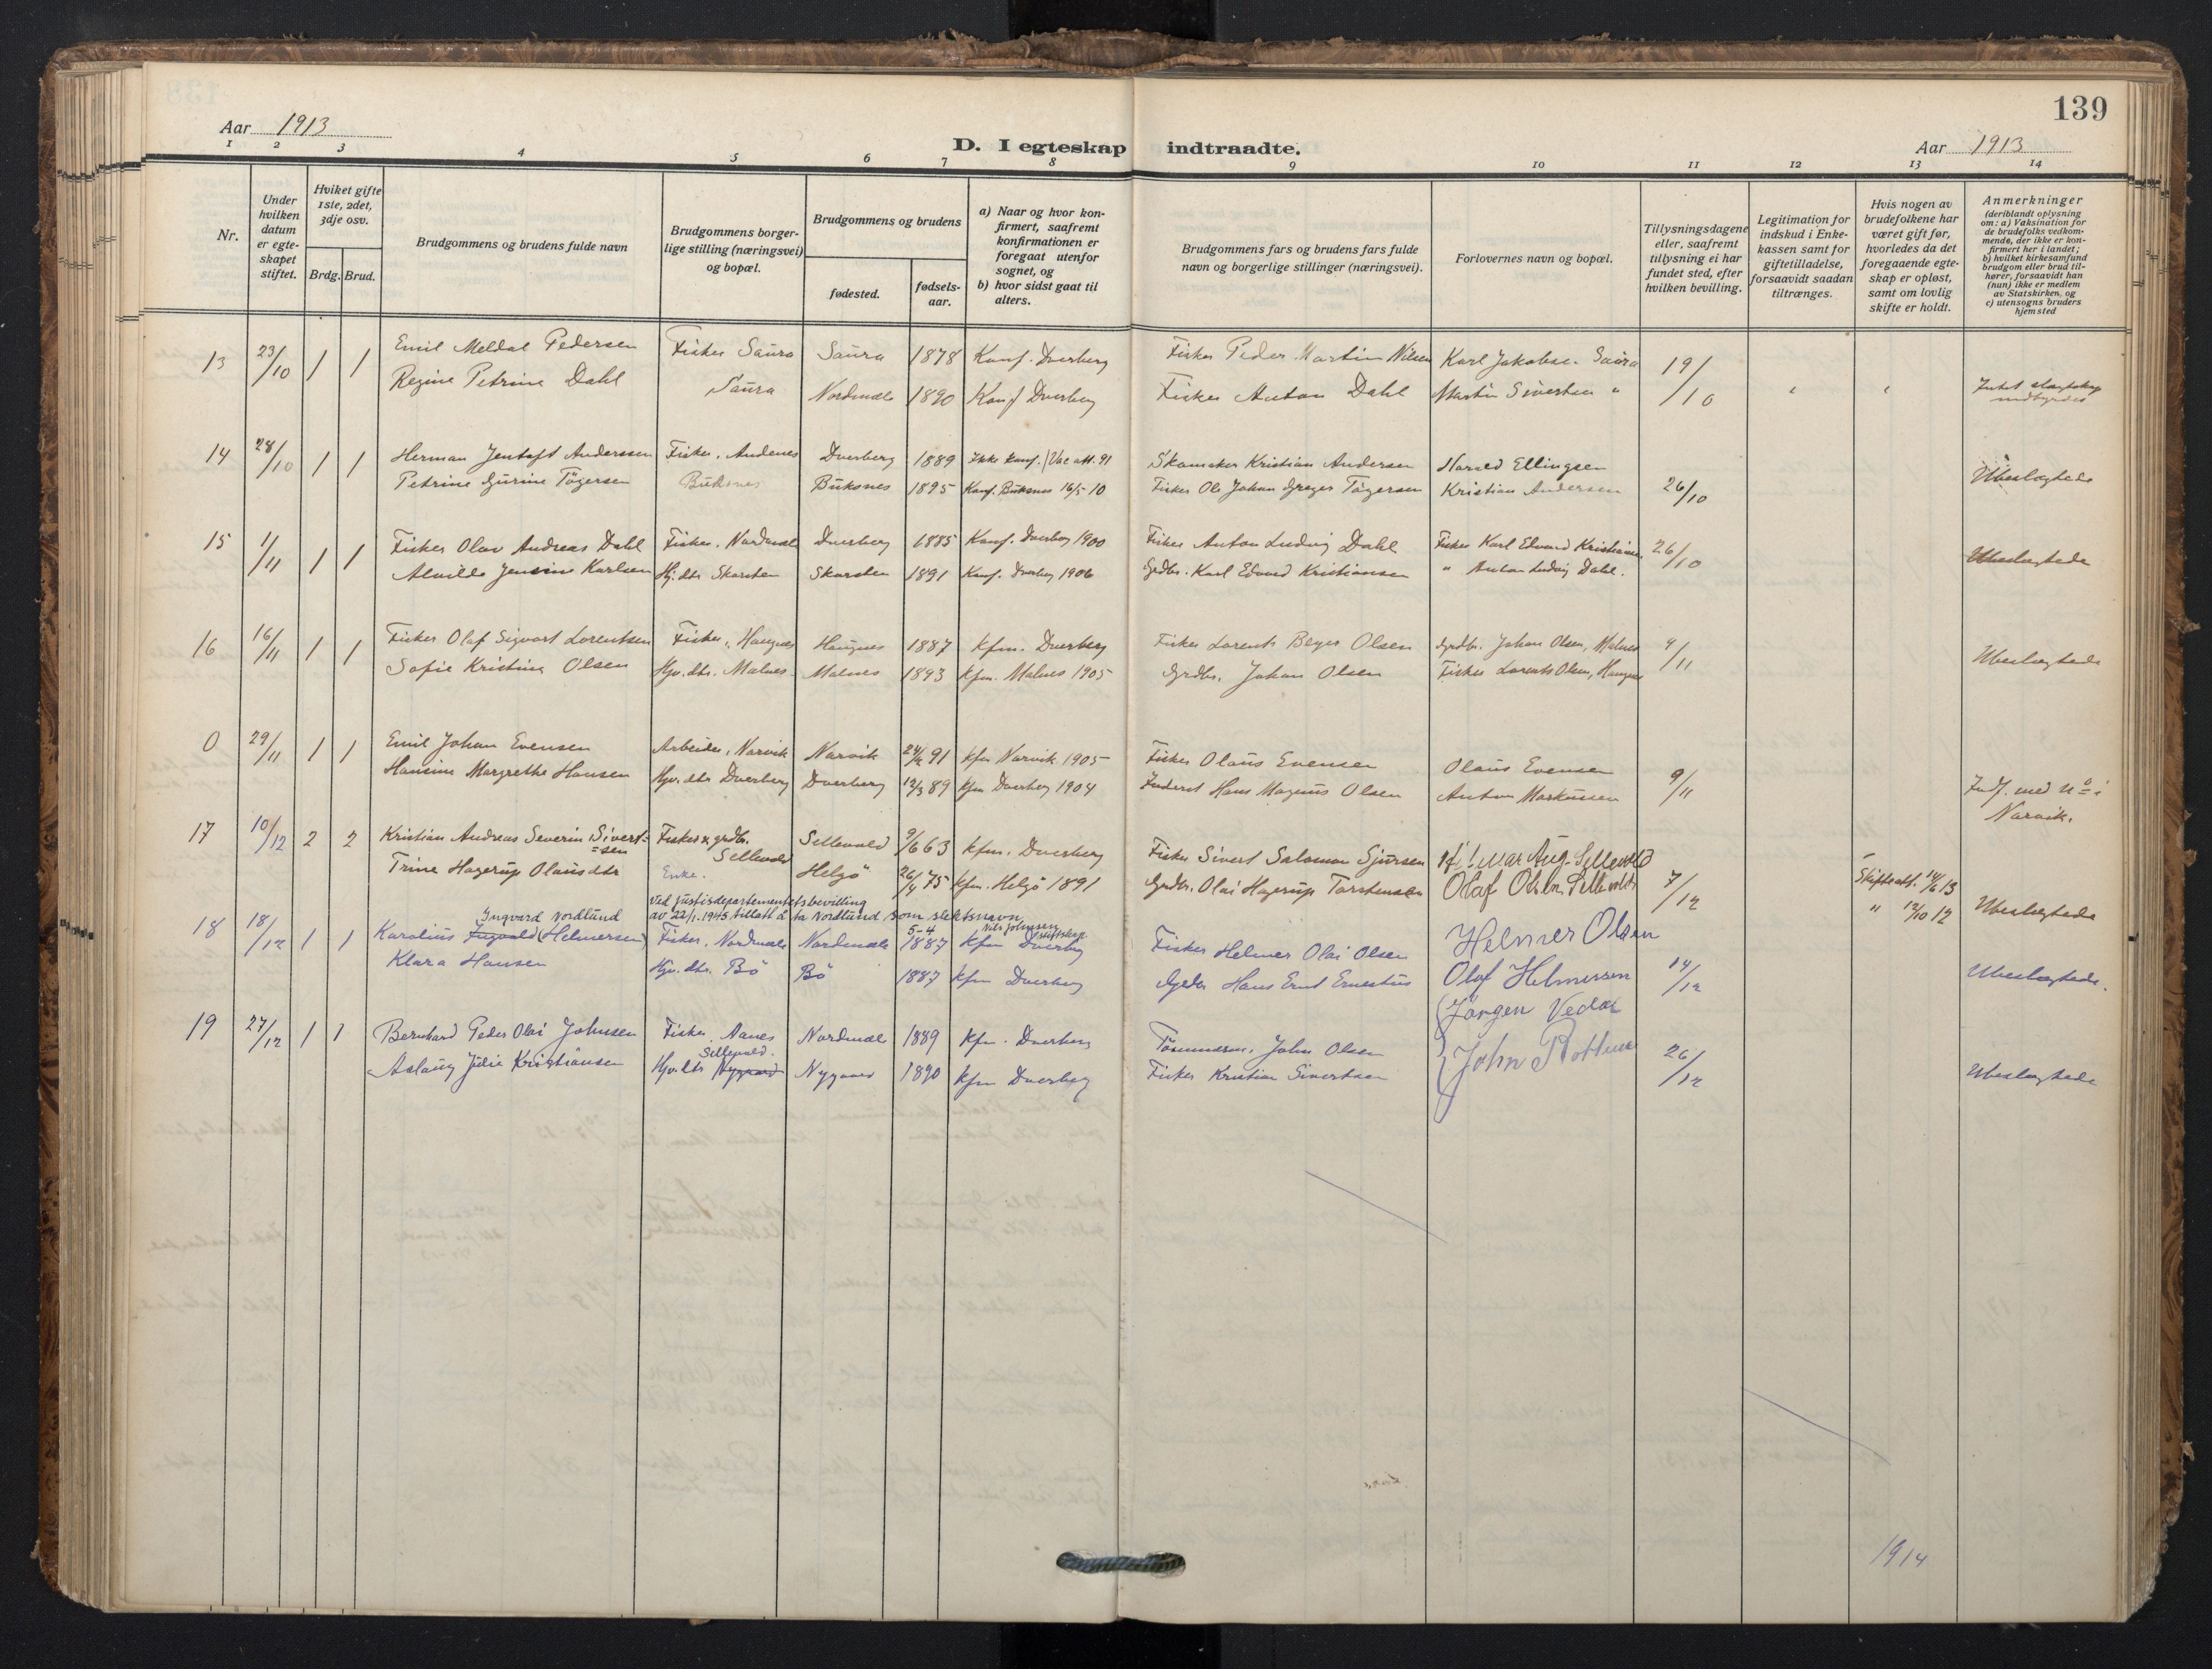 139
Aar 1913
D. I egteskap indtraadte.
Aar 1913
1 2 3 4 5 6 7 8 9 10 11 12 13 14
Nr.
Under hvilken datum er egteskapet stiftet.
Hviket gifte 1ste, 2det, 3dje osv.
Brdg. Brud.
Brudgommens og brudens fulde navn
Brudgommens borgerlige stilling (næringsvei) og bopæl.
Brudgommens og brudens
fødested.
fødselsaar.
a) Naar og hvor konfirmert, saafremt konfirmationen er foregaat utenfor sognet, og
b) hvor sidst gaat til alters.
Brudgommens fars og brudens fars fulde navn og borgerlige stillinger (næringsvei).
Forlovernes navn og bopæl.
Tillysningsdagene eller, saafremt tillysning ei har fundet sted, efter hvilken bevilling.
Legitimation for indskud i Enkekassen samt for giftetilladelse, forsaavidt saadan tiltrænges.
Hvis nogen av brudefolkene har været gift før, hvorledes da det foregaaende egteskap er opløst, samt om lovlig skifte er holdt.
Anmerkninger
(deriblandt oplysning om: a) Vaksination for de brudefolks vedkommende, der ikke er konfirmert her i landet; b) hvilket kirkesamfund brudgom eller brud tilhører, forsaavidt han (hun) ikke er medlem av Statskirken, og c) utensogns bruders hjemsted
13 23/10 1 1 Emil Meldal Pedersen Fisker Saura Saura 1878 Konf. Dverberg Fisker Peder Martin Nilsen Karl Jakobsen Saura 19/10
Regine Petrine Dahl Saura Nordmæle 1890 Konf Dverberg Fisker Anton Dahl Martin Sivertsen " Intet slægtskap
14 28/10 1 1 Herman Jentoft Andersen Fisker, Andenes Dverberg 1889 Ikke konf. / Vac att. 91 Skomaker Kristian Andersen Harald Ellingsen Ubeslægtede
Petrine Gurine Tøgersen Buksnes Buksnes 1895 Konf. Buksnes 16/5-10 Fisker Ole Johan Greger Tøgersen Kristian Andersen 26/10
15 1/11 1 1 Fisker Olav Andreas Dahl Fisker, Nordmæle Dverberg 1885 Konf. Dverberg 1900 Fisker Anton Ludvig Dahl Fisker Karl Edvard Kristiansen 26/10
Alvilde Jensine Karlsen Hj. dtr. Skarsten Skarsten 1891 Konf. Dverberg 1906 Grdbr. Karl Edvard Kristiansen " Anton Ludvig Dahl. Ubeslægtede
16 16/11 1 1 Fisker Olaf Sigvart Lorentsen Fisker, Haugnes Haugnes 1887 Kfm. Dverberg Fisker Lorents Beyer Olsen Grdbr. Johan Olsen, Malnes 9/11
Sofie Kristine Olsen Hjv. dtr. Malnes Malnes 1893 Kfm. Malnes 1905 Grdbr. Johan Olsen Fisker Lorents Olsen, Haugnes Ubeslægtede
0 29/11 1 1 Emil Johan Evensen Arbeider, Narvik Narvik 91 Kfm Narvik 1905 Fisker Olaus Evensen Olaus Evensen 9/11
Hansine Margrethe Hansen Hjv. dtr Dverberg Dverberg 12/3 89 Kfm Dverberg 1904 Inderst Hans Magnus Olsen Anton Markussen Indf. med No i Narvik.
17 10/12 2 2 Kristian Andreas Severin Sivertsen Fisker & grdbr. Sellevold Sellevold 9/6 63 Kfm. Dverberg Fisker Sivert Salomon Sjursen Hilmar Aug. Sellevold 7/12 Skifteatt. 14/6 13
Trine Hagerup Olausdtr Enke. Helgø 26/4 75 Kfm. Helgø 1891 Grdbr. Olai Hagerup Torstensen Olaf Olsen Sellevold " 12/10 12 Ubeslægtede
Ved justisdepartementets bevilling av 22/1. 1945 tillatt å ta Nordlund som slektsnavn
Nils Johnsen
18 18/12 1 1 Ingvard Nordlund
Karolius Ingvald (Helmersen) Fisker, Nordmæle Nordmæle 5-4 1887 Kfm Dverberg Fisker Helmer Olai Olsen Helmer Olsen
Klara Hansen Hjv. dtr. Bø Bø 1887 Kfm Dverberg Hans Ernt Ernestus Olaf Helmersen 14/12 Ubeslægtede.
19 27/12 1 1 Bernhard Peder Olai Johnsen Fisker Aanes Nordmæle 1889 Kfm. Dverberg John Olsen Jørgen Vedal
Aslaug Julie Kristiansen Hjv. dtr Sellevold. Nygaard Nygaard 1890 Kfm Dverberg Fisker Kristian Sivertsen John 26/12 Ubeslægtede
1914